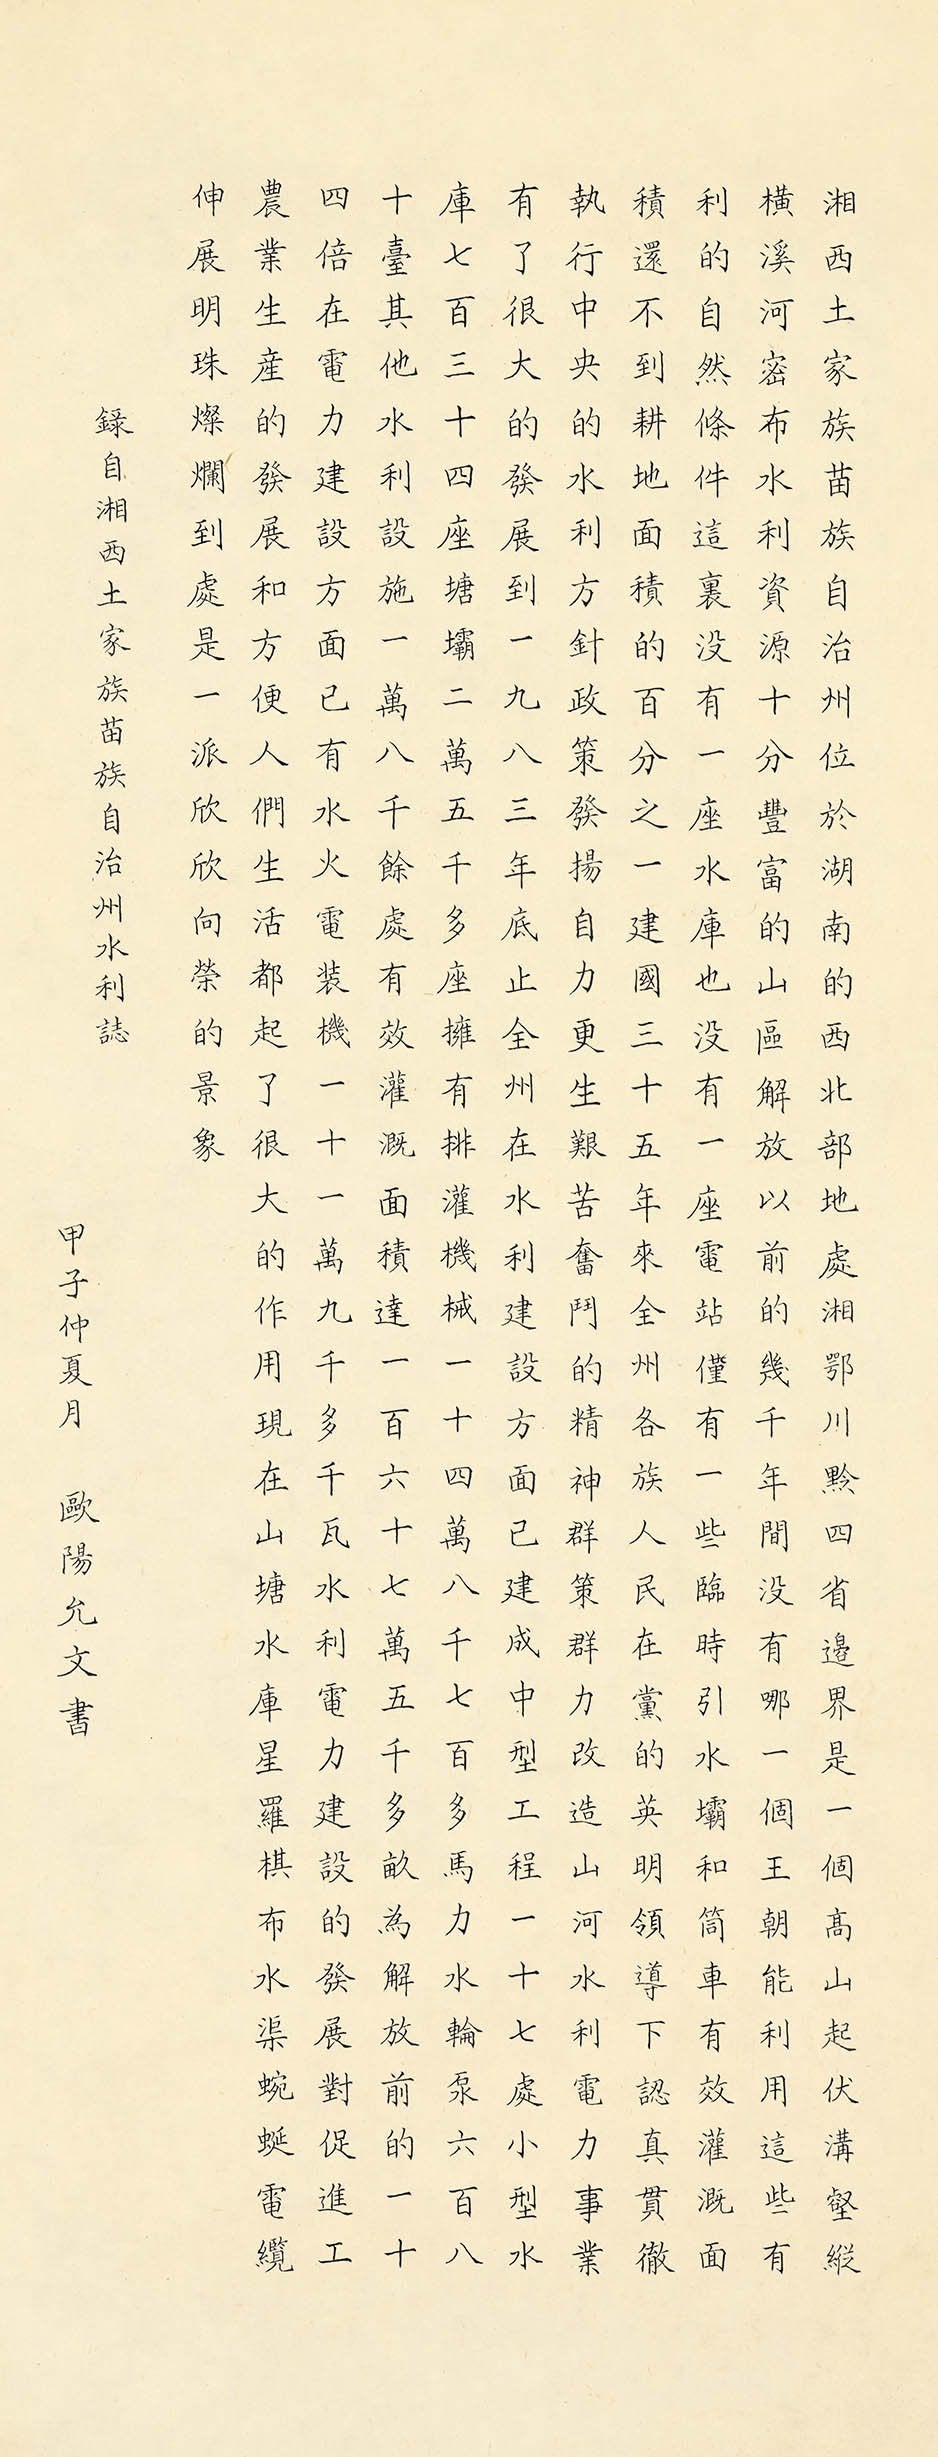 湘西土家族苗族自治州位於湖南的西北部地處湘鄂川黔四省邊界是一個高山起伏溝壑縱
橫溪河密布水利資源十分豐富的山區解放以前的幾千年間没有哪一個王朝能利用這些有
利的自然條件這裏没有一座水庫也没有一座電站僅有一些臨時引水壩和筒車有效灌溉面
積還不到耕地面積的百分之一建國三十五年來全州各族人民在黨的英明領導下認真貫徹
執行中央的水利方針政策發揚自力更生艱苦奮鬥的精神群策群力改造山河水利電力事業
有了很大的發展到一九八三年底止全州在水利建設方面已建成中型工程一十七處小型水
庫七百三十四座塘壩二萬五千多座擁有排灌機械一十四萬八千七百多馬力水輪泵六百八
十臺其他水利設施一萬八千餘處有效灌溉面積達一百六十七萬五千多畝為解放前的一十
四倍在電力建設方面已有水火電装機一十一萬九千多千瓦水利電力建設的發展對促進工
農業生産的發展和方便人們生活都起了很大的作用現在山塘水庫星羅棋布水渠蜿蜒電纜
伸展明珠燦爛到處是一派欣欣向榮的景象
錄自湘西土家族苗族自治州水利誌
甲子仲夏月 歐陽允文書